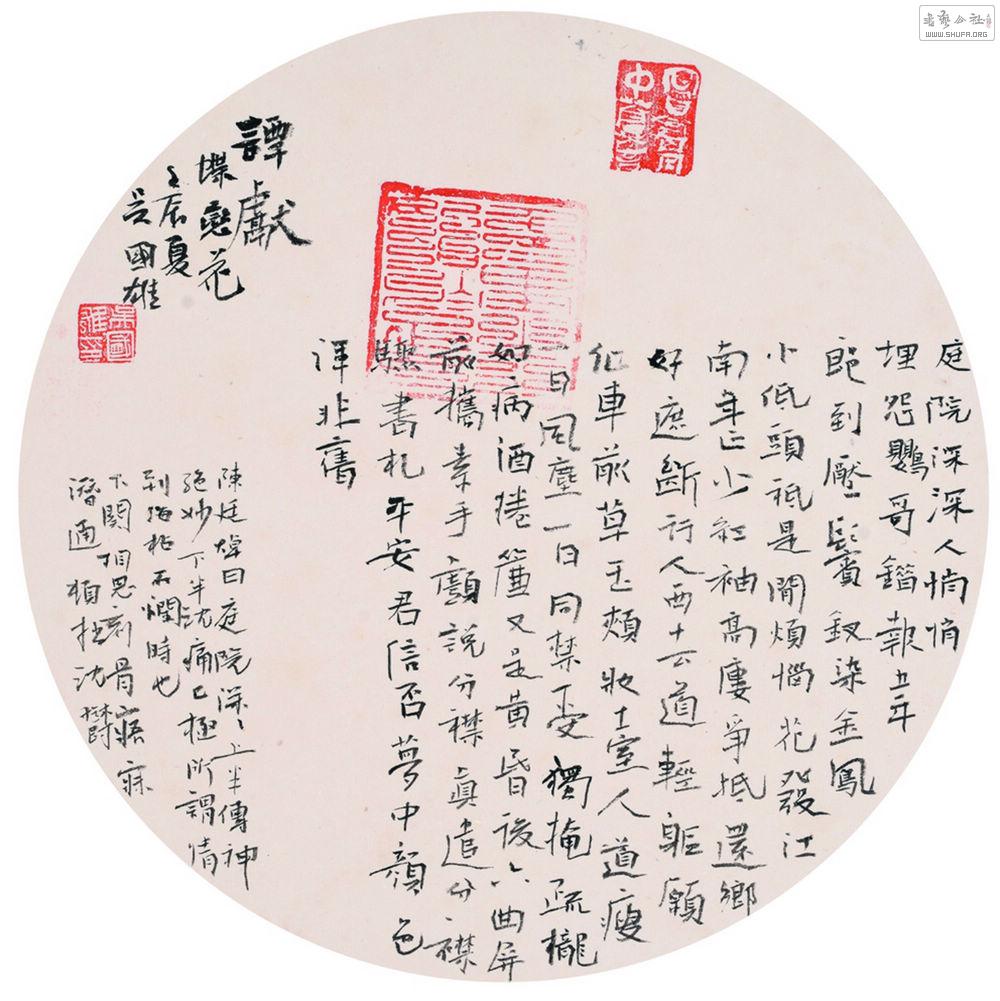 庭院深深人悄悄
埋怨鸚哥錯報韋郎
郎到壓鬢釵梁金鳳
小低頭祇是閒煩惱花發江
南年正少紅袖高樓爭抵還鄉
好遮斷行人西去道輕軀願
化車前草玉頰妝臺人道瘦
一日風塵一日同禁受獨掩疏櫳
如病酒捲簾又是黃昏後六曲屏
前攜素手戲說分襟真遣分襟
驟書札平安君信否夢中顏色
渾非舊
譚獻
蝶戀花
壬辰夏
吳國雄
陳廷焯曰庭院深深上半傳神
絕妙下半沈痛已極所謂情
到海枯石爛時也
下闋相思刻骨寤寐
潛通頓挫沈鬱
吳國雄印
書藝公社
WWW.SHUFA.ORG